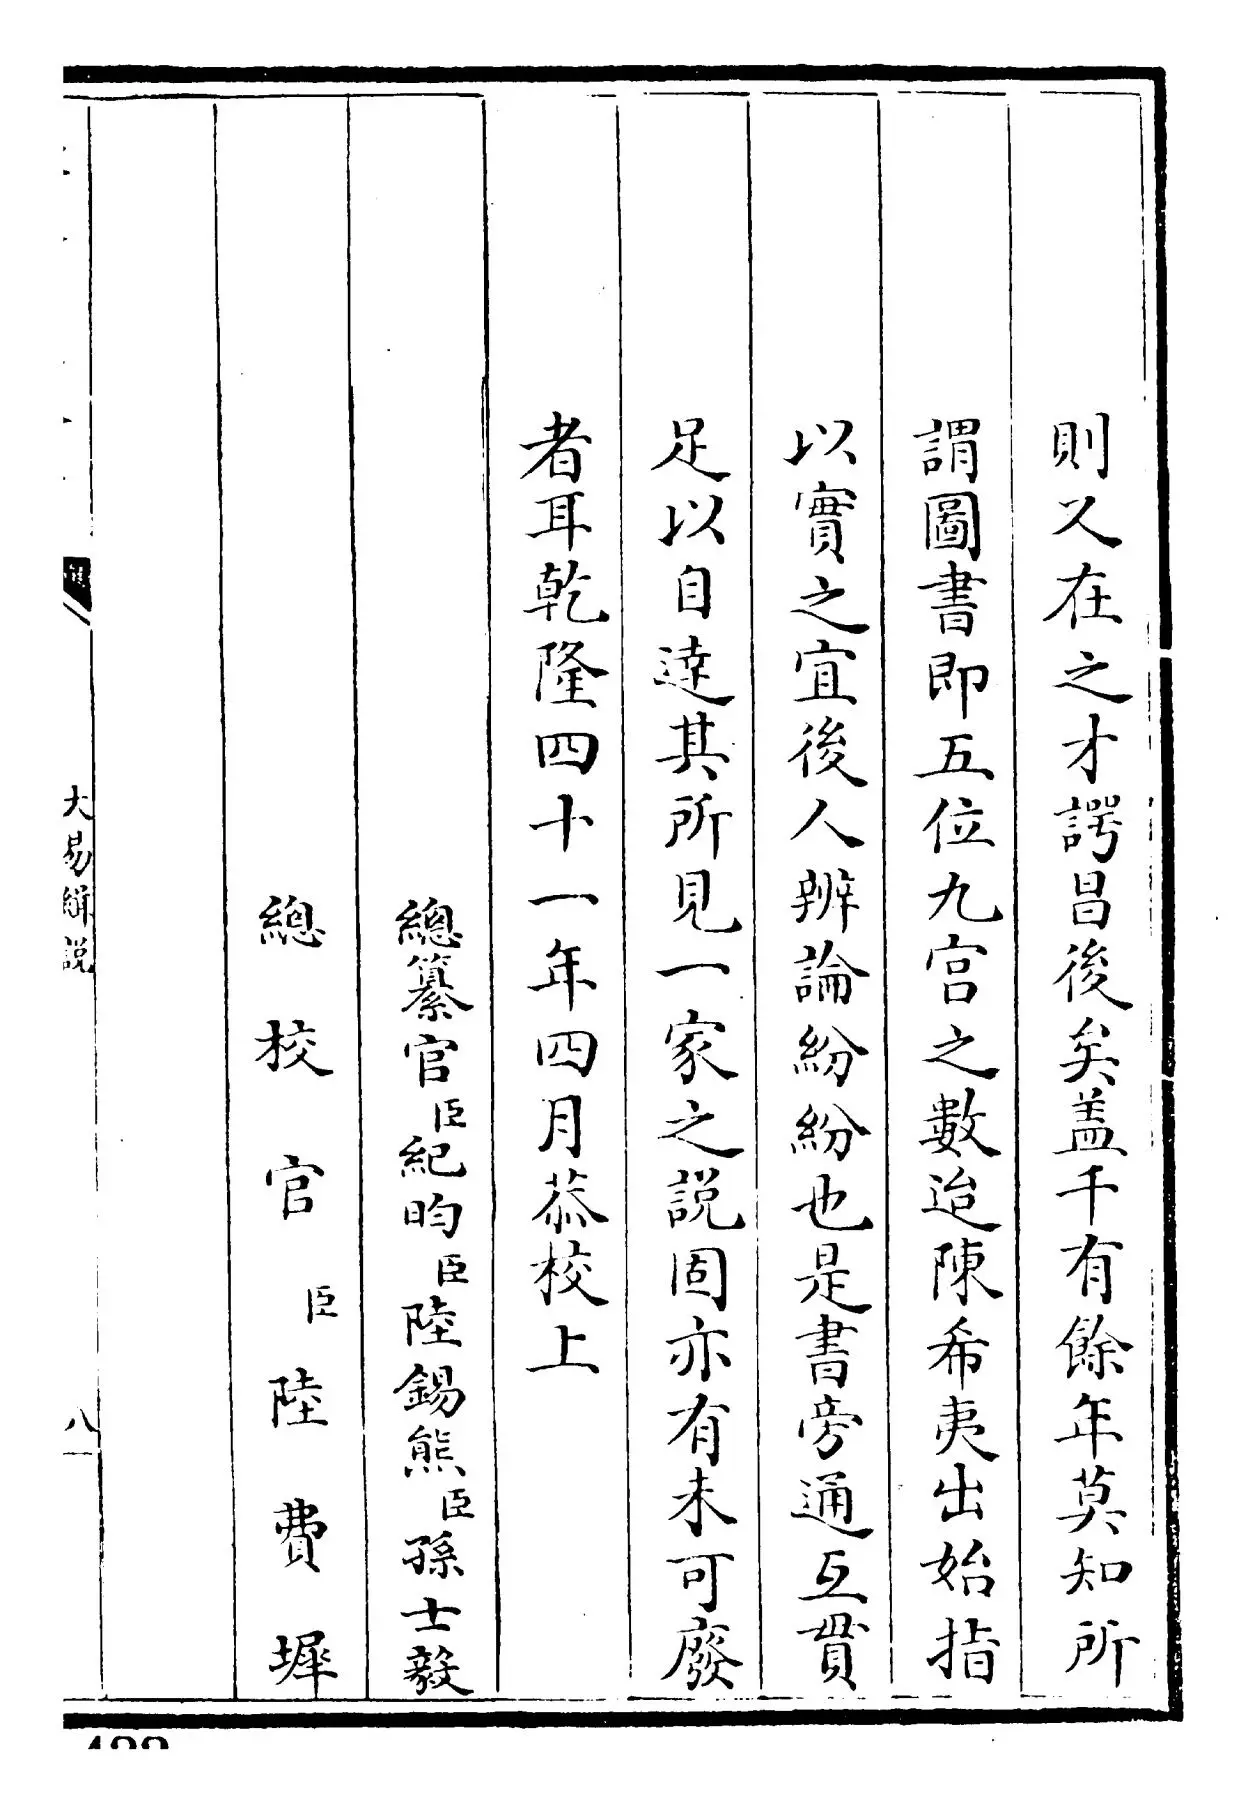 則又在之才諤昌後矣盖千有餘年莫知所
謂圖書即五位九宫之數迨陳希夷出始指
以實之宜後人辨論紛紛也是書旁通互貫
足以自達其所見一家之説固亦有未可廢
者耳乾隆四十一年四月恭校上
總纂官臣紀昀臣陸錫熊臣孫士毅
總校官臣陸費墀
大易緝説
八